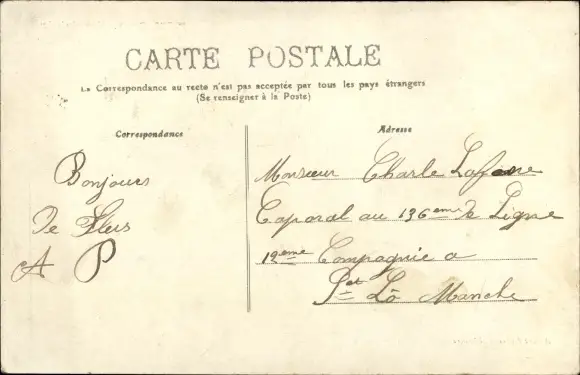 CARTE POSTALE
La Correspondance au recto n'est pas acceptée par tous les pays étrangers
(Se renseigner à la Poste)
Correspondance
Adresse
Bonjours
De Flers
A P
Monsieur Charle
Caporal au 136eme de Ligne
12eme Compagnie a
St Lô Manche